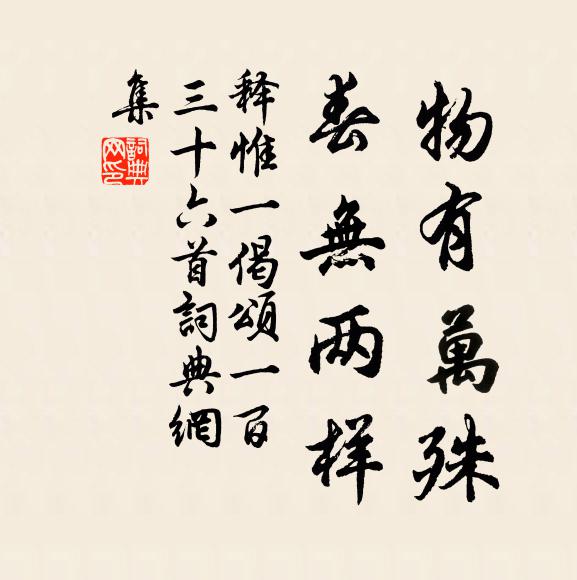 物有萬殊
春無两样
释惟一偈頌一百
三十六首詞典網
集
詞典網印